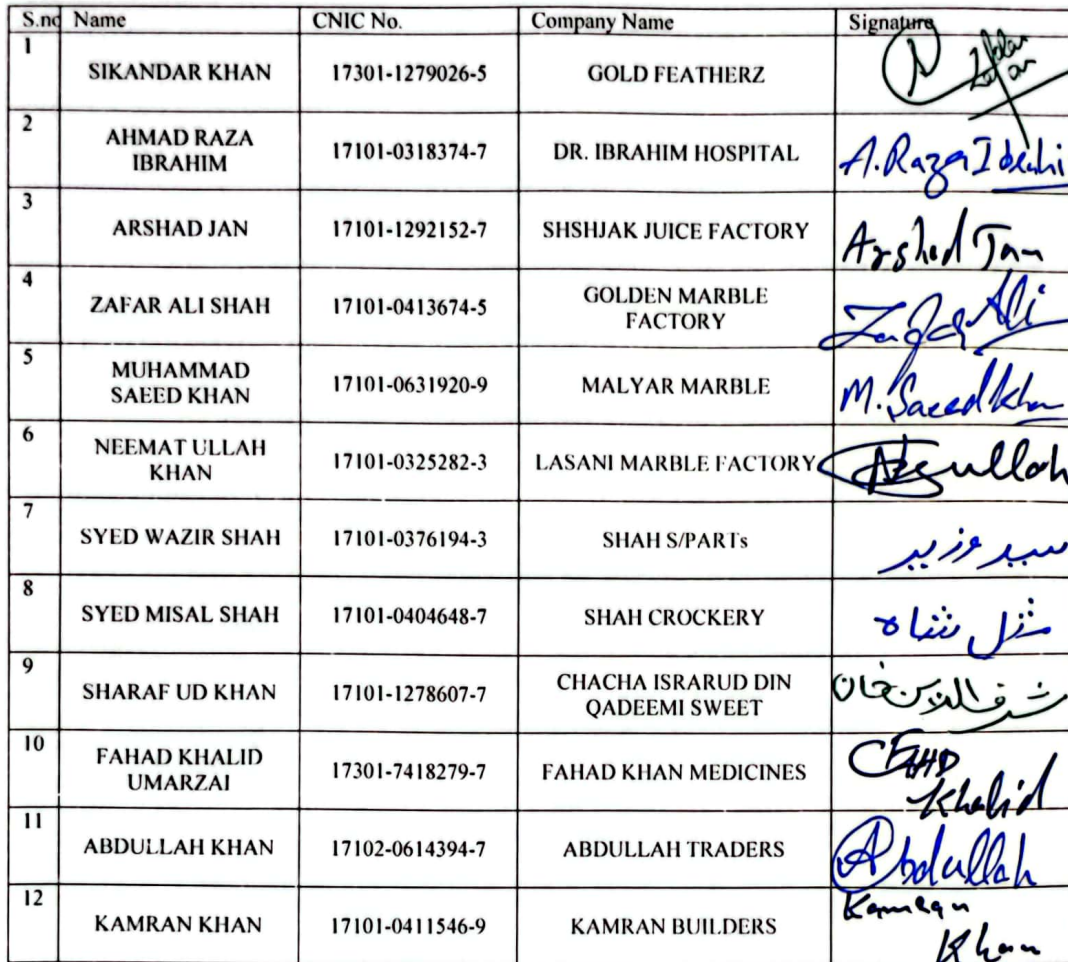 S.no Name CNIC No. Company Name Signature
1 SIKANDAR KHAN 17301-1279026-5 GOLD FEATHERZ
2 AHMAD RAZA IBRAHIM 17101-0318374-7 DR. IBRAHIM HOSPITAL A.Raza Ibrahi
3 ARSHAD JAN 17101-1292152-7 SHSHJAK JUICE FACTORY Arshed Jan
4 ZAFAR ALI SHAH 17101-0413674-5 GOLDEN MARBLE FACTORY Zafar Ali
5 MUHAMMAD SAEED KHAN 17101-0631920-9 MALYAR MARBLE M. Saeed Khan
6 NEEMAT ULLAH KHAN 17101-0325282-3 LASANI MARBLE FACTORY
7 SYED WAZIR SHAH 17101-0376194-3 SHAH S/PARTs سید وزیر
8 SYED MISAL SHAH 17101-0404648-7 SHAH CROCKERY مثل شاہ
9 SHARAF UD KHAN 17101-1278607-7 CHACHA ISRARUD DIN QADEEMI SWEET شرف الدین خان
10 FAHAD KHALID UMARZAI 17301-7418279-7 FAHAD KHAN MEDICINES FAHD Khalid
11 ABDULLAH KHAN 17102-0614394-7 ABDULLAH TRADERS Abdullah
12 KAMRAN KHAN 17101-0411546-9 KAMRAN BUILDERS Kamran Khan